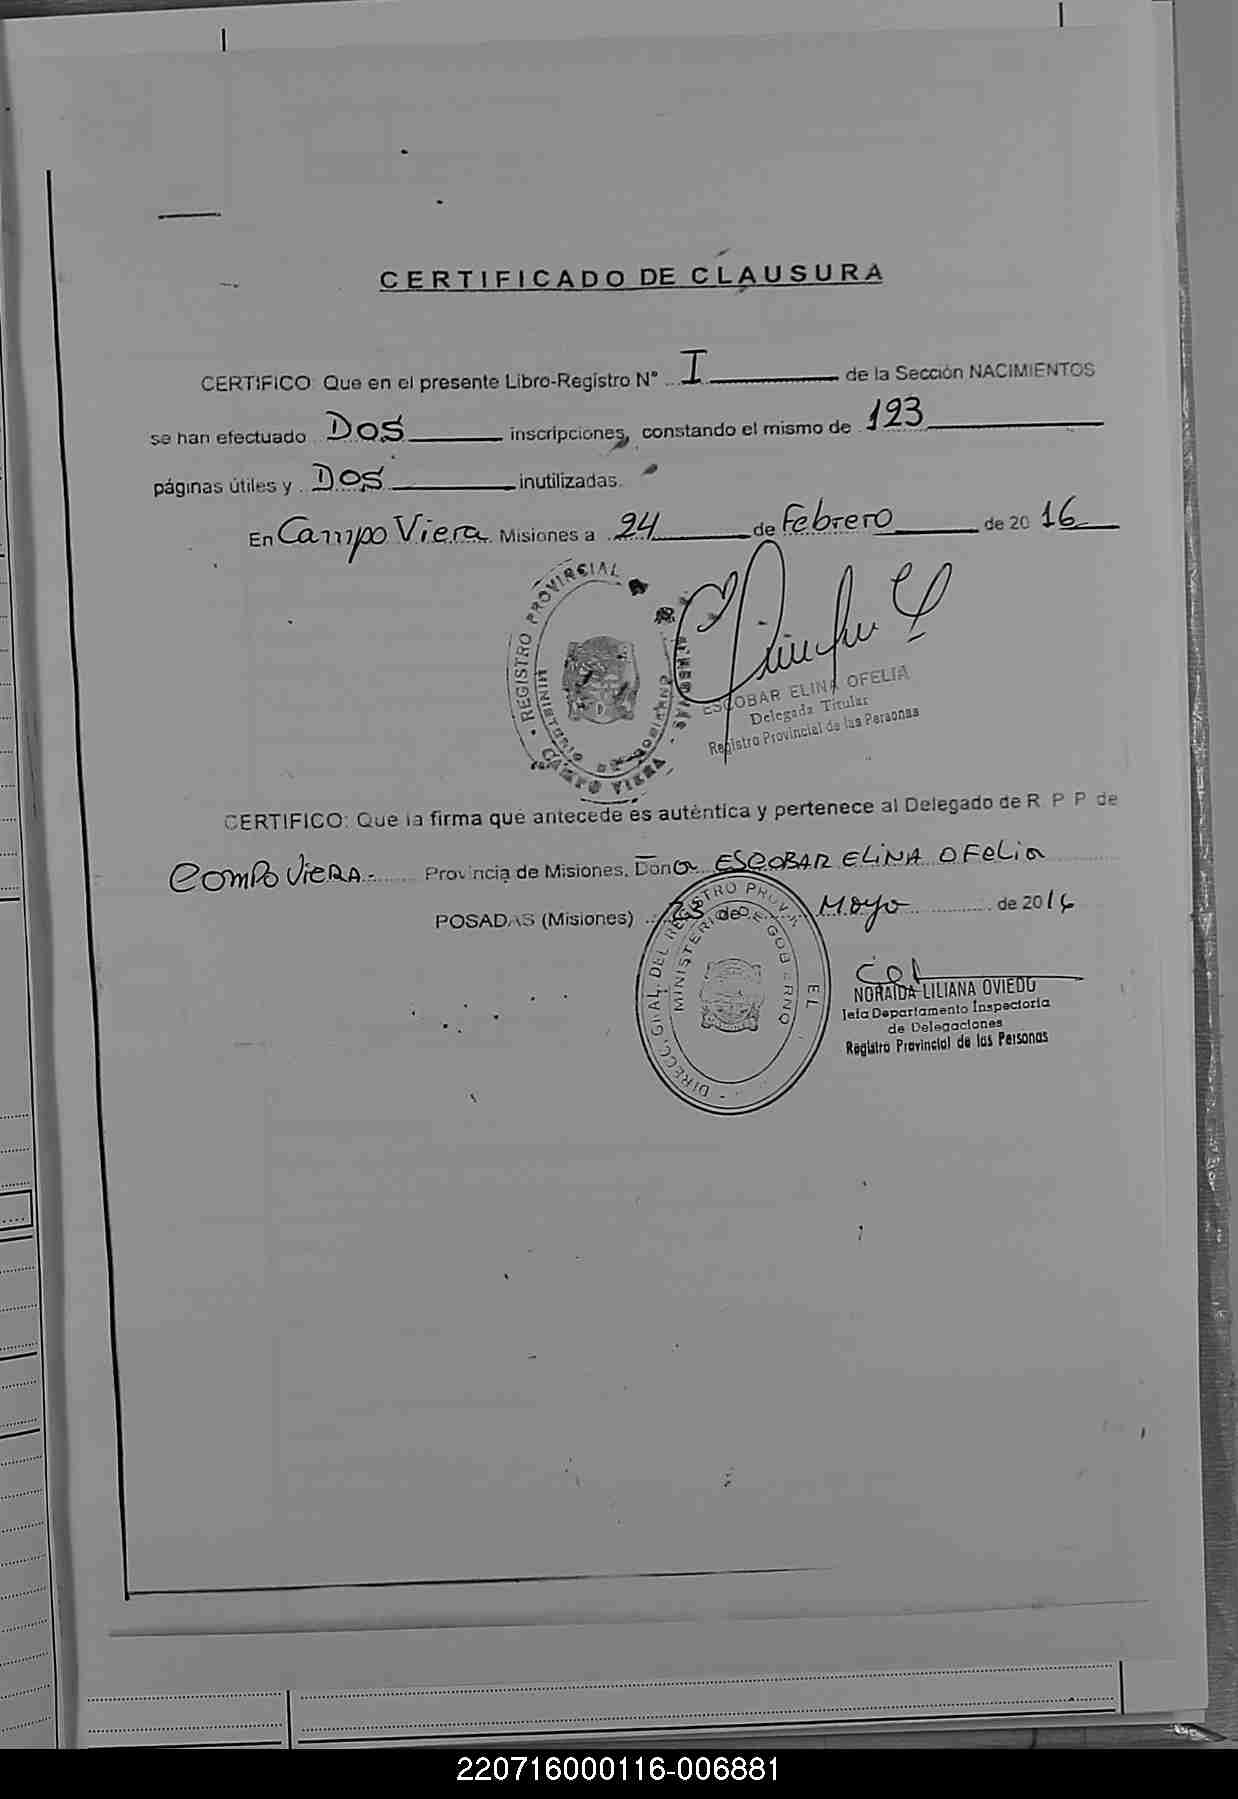 CERTIFICADO DE CLAUSURA
CERTIFICO: Que en el presente Libro-Registro N° I de la Sección NACIMIENTOS
se han efectuado DOS inscripciones, constando el mismo de 193
páginas útiles y DOS inutilizadas.
En Campo Viera Misiones a 24 de Febrero de 2016
REGISTRO PROVINCIAL DE LAS PERSONAS
MINISTERIO DE GOBIERNO
CAMPO VIERA
ESCOBAR ELINA OFELIA
Delegada Titular
Registro Provincial de las Personas
CERTIFICO: Que la firma que antecede es auténtica y pertenece al Delegado de R. P. P. de
Campo Viera.- Provincia de Misiones, Donã ESCOBAR ELINA OFELIA
POSADAS (Misiones) de Mayo de 2016
DIRECC. GRAL. DEL REGISTRO PROV.
MINISTERIO DE GOBIERNO
NORAIDA LILIANA OVIEDO
Jefa Departamento Inspectoría
de Delegaciones
Registro Provincial de las Personas
220716000116-006881